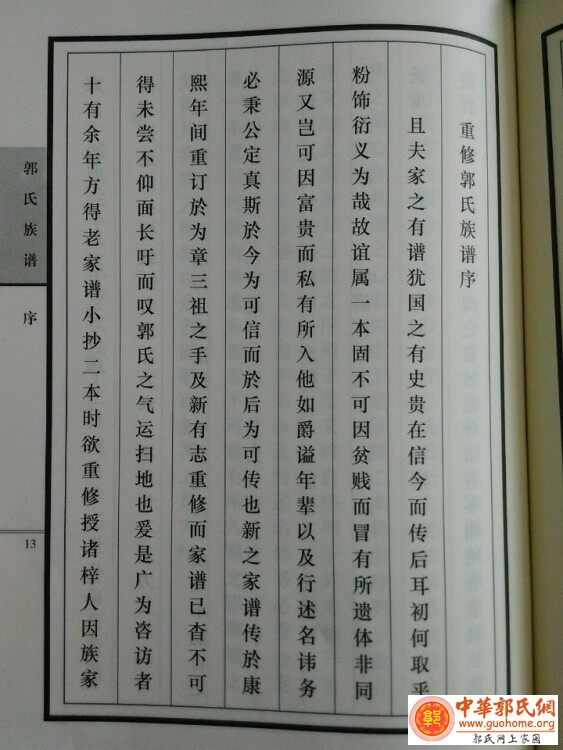 重修郭氏族谱序
且夫家之有谱犹国之有史贵在信今而传后耳初何取乎
粉饰衍义为哉故谊属一本固不可因贫贱而冒有所遗体非同
源又岂可因富贵而私有所入他如爵谥年辈以及行述名讳务
必秉公定真斯於今为可信而於后为可传也新之家谱传於康
熙年间重订於为章三祖之手及新有志重修而家谱已杳不可
得未尝不仰面长吁而叹郭氏之气运扫地也爰是广为咨访者
十有余年方得老家谱小抄二本时欲重修授诸梓人因族家
郭氏族谱
序
13
郭
中華郭氏網
www.guohome.org
郭氏网上家园